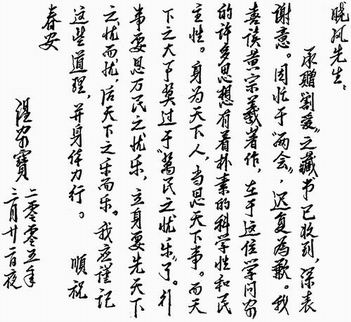 晓风先生:
承赠劉爱之藏书已收到,深表
谢意。因忙于“两会”,迟复为歉。我
喜读黄宗羲著作,在于这位学问家
的许多思想有着朴素的科学性和民
主性。身为天下人,当思天下事。而天
下之大事莫过于“萬民之忧乐”了。行
事要思万民之忧乐,立身要先天下
之忧而忧,后天下之乐而乐。我应谨记
这些道理,并身体力行。 顺祝
春安
温家寶
二零零五年
三月廿一日夜